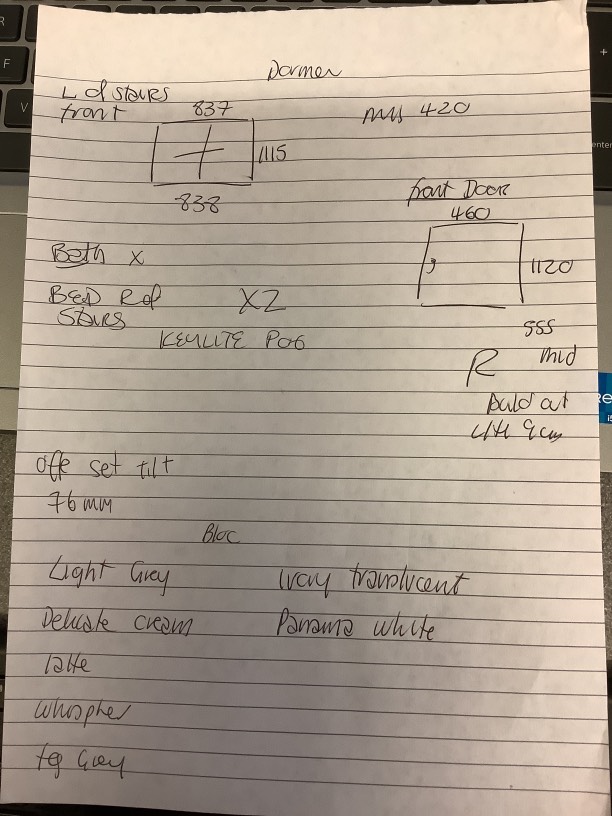 Dormer
L of stairs
front
837
1115
838
420
front Door
460
1120
Bath x
BED R of
Stairs
X2
KEYLITE P06
555
R mid
build out
Off set tilt
76 mm
Bloc
Light Grey
Ivory translucent
Delicate cream
Panama white
latte
Whospher
fog Grey